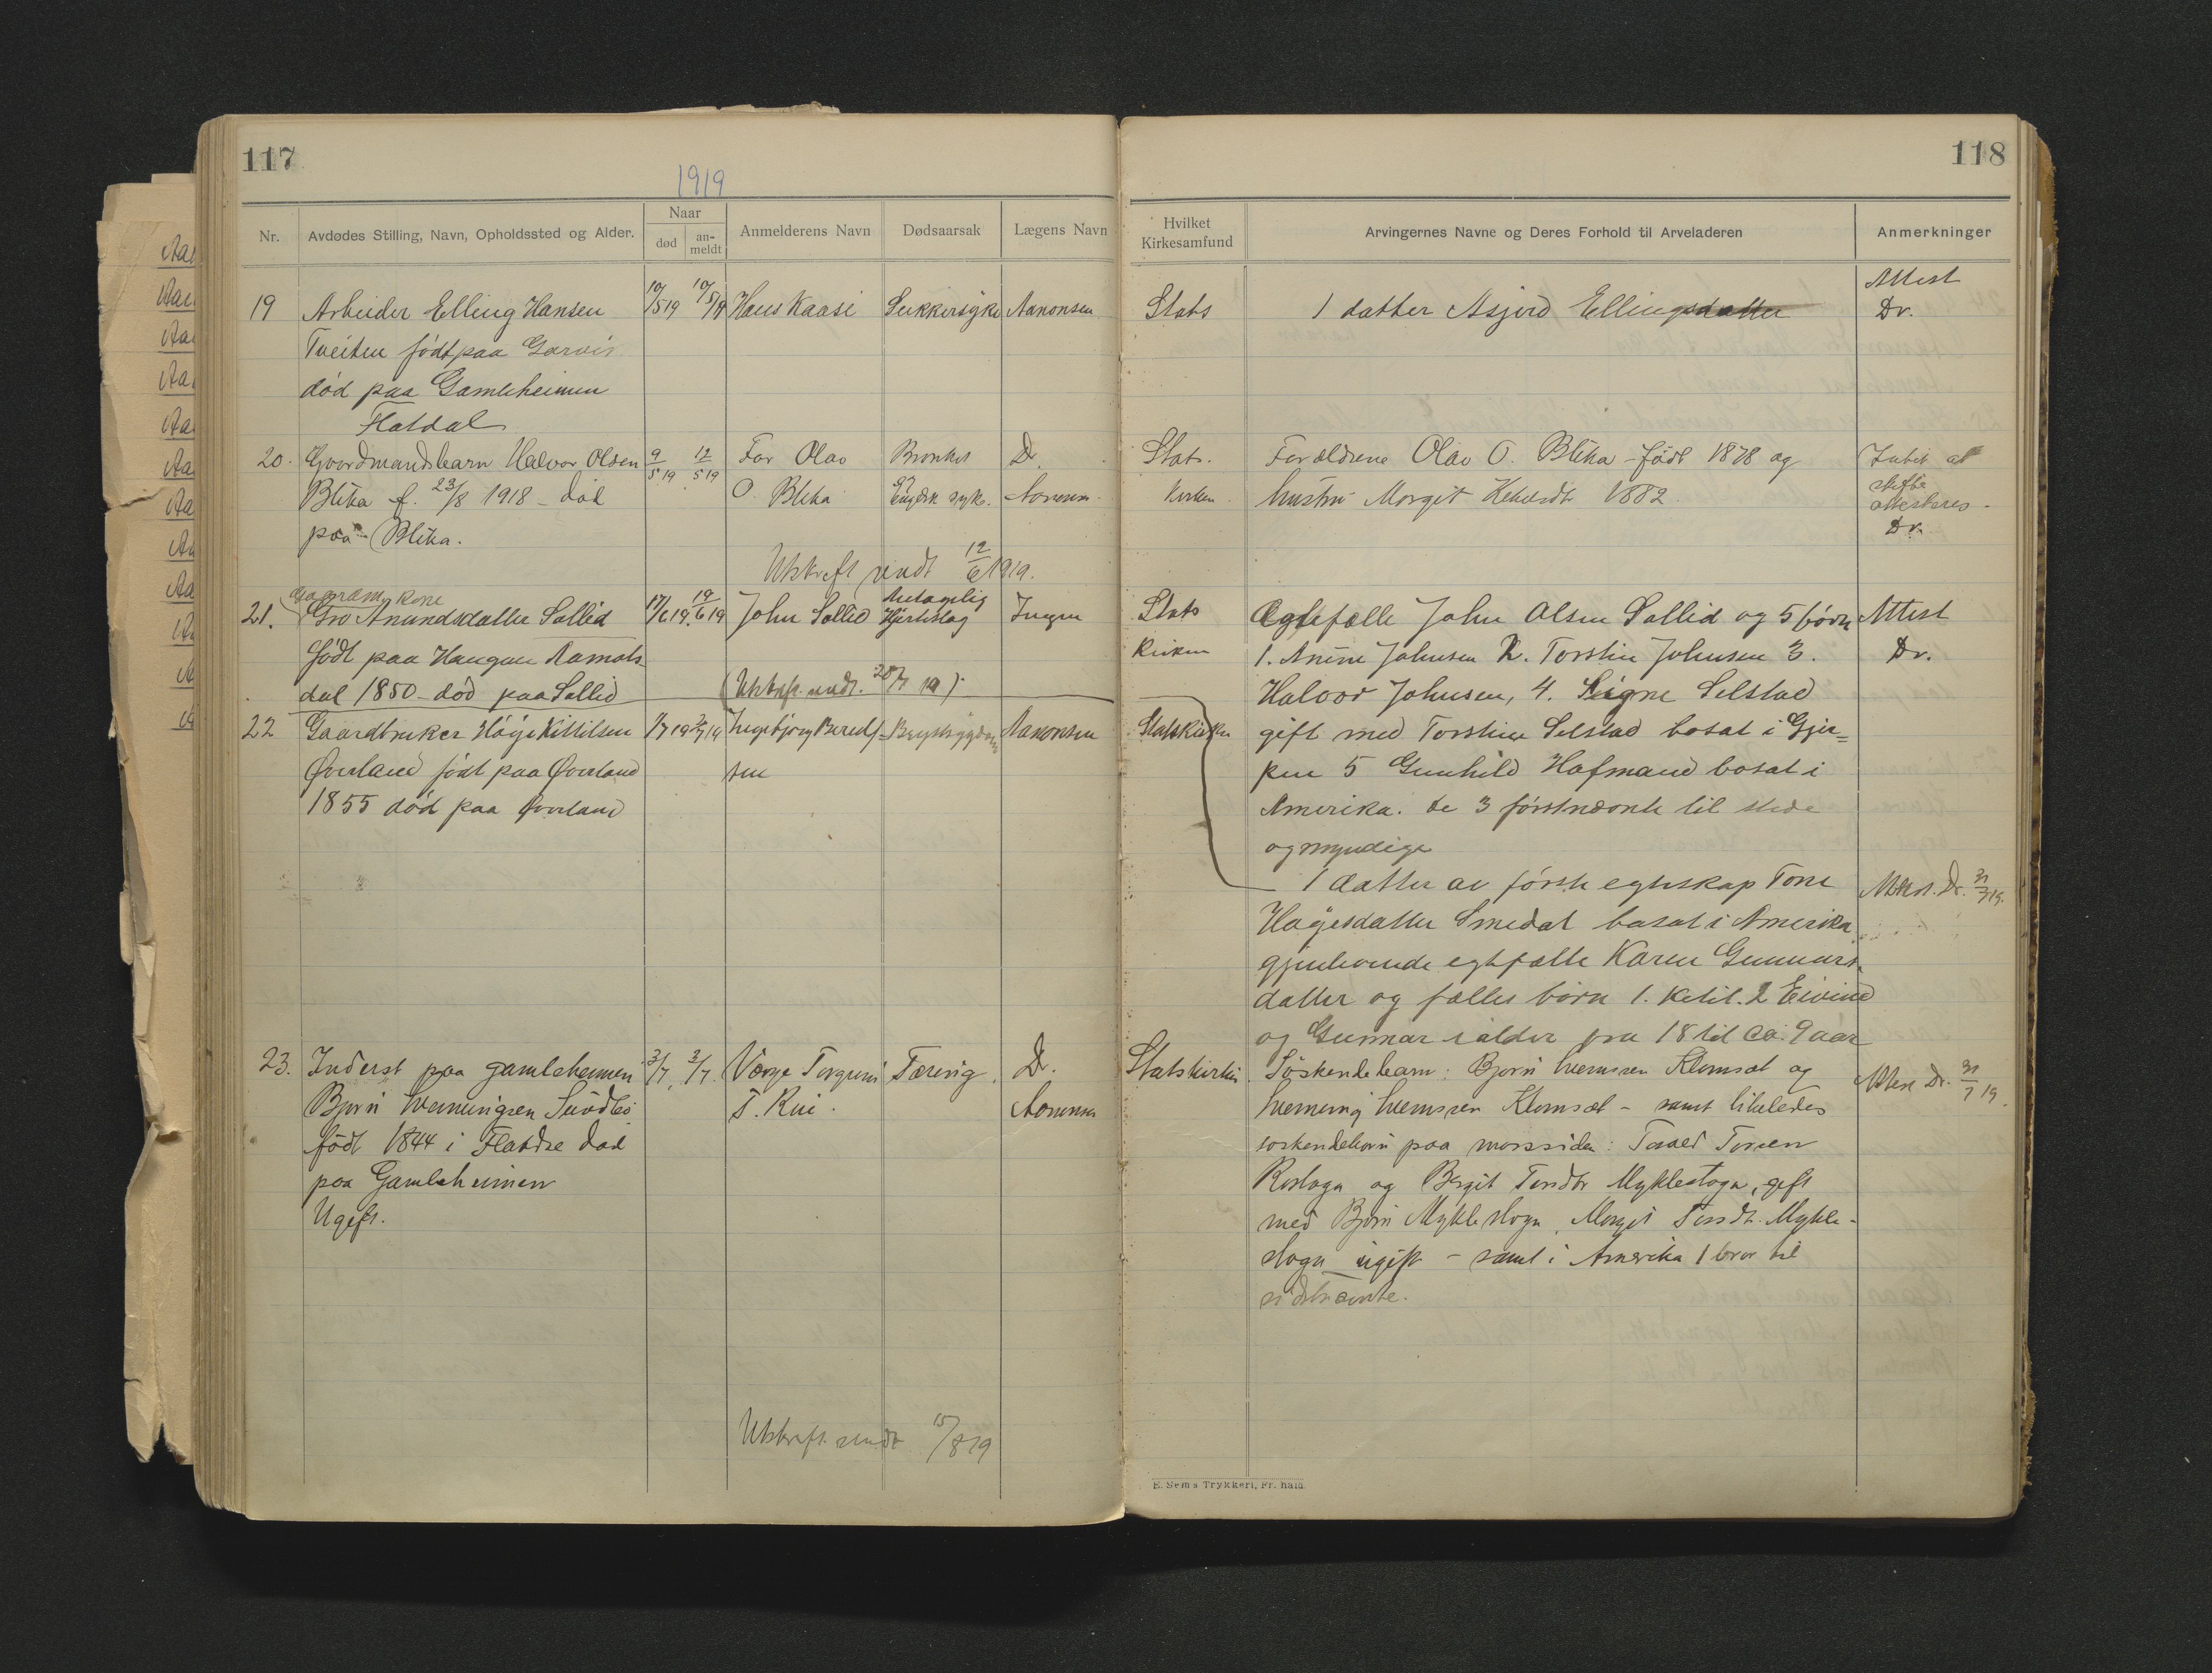 117
1919
Nr.
Avdødes Stilling, Navn, Opholdssted og Alder.
Naar
død
an-
meldt
Anmelderens Navn
Dødsaarsak
Lægens Navn
19
Arbeider Elling Hansen
10/5 19
10/5 19
Hans Kaasi
Sukkersyke
Aanonsen
Tveiten født paa Garvis
død paa Gamleheimen
Flatdal
20.
Gaardmandsbarn Halvor Olsen
9/5 19
12/5 19
Far Olav
Bronkit
Dr.
Blika f. 23/8 1918 - død
O. Blika
og Engelsk syke.
Aanonsen
paa Blika.
Utskrift sendt 12/6 1919.
Gaardm. kone
21.
Gro Anundsdatter Sollid
17/6 19
19/6 19
John Sollid
Antagelig
Hjerteslag
Ingen
født paa Haugan Aamots
dal 1850 - død paa Sollid
(Utskrift sendt. 20/7 19)
22
Gaardbruker Høye Kittilsen
1/7 19
2/7 19
Ingebjørg
Brystsygdom
Aanonsen
Øverland født paa Øverland
sen
1855 død paa Øverland
23.
Inderst paa gamleheimen
3/7
3/7
Værge Torgrim
Tæring.
Dr.
Bjørn
T. Rui.
Aanonsen
født 1844 i Flatdal død
paa Gamleheimen
Ugift.
Utskrift sendt 15/8 19
118
Hvilket
Kirkesamfund
Arvingernes Navne og Deres Forhold til Arveladeren
Anmerkninger
Stats
1 datter Asjerd Ellingsdatter
Attest
Dr.
Stats.
Kirken
Forældrene Olav O. Blika - født 1878 og
hustru Margit 1882
Intet at
skifte
attesteres -
Dr.
Stats
Kirken
Egtefælle John Olsen Sollid og 5 børn
Attest
1. Anine Johnsen 2. Torstein Johnsen 3.
Dr.
Halvor Johnsen, 4. Signe Selstad
Statskirken
gift med Torstein Selstad bosat i Gjer=
pen 5 Gunhild Hofmand bosat i
Amerika. de 3 førstnævnte til stede
og myndige
1 datter av første egteskap Tone
Attest. Dr. 31/7 19.
Høyesdatter Smedal bosat i Amerika
gjenlevende egtefælle Karen Gunnars-
datter og fælles børn 1. Ketil. 2 Eivind
og Gunnar i alder fra 18 til ca. 9 aar
Statskirken
Søskendebarn: Bjørn
og
Attest Dr. 31/7 19.
samt likeledes
søskendebørn paa morssiden:
og Birgit Myklestoga, gift
med Bjørn Myklestoga, Margit Mykle-
stoga ugift - samt i Amerika 1 bror til
sidstnævnte.
E. Sem's Trykkeri, Fr.hald.